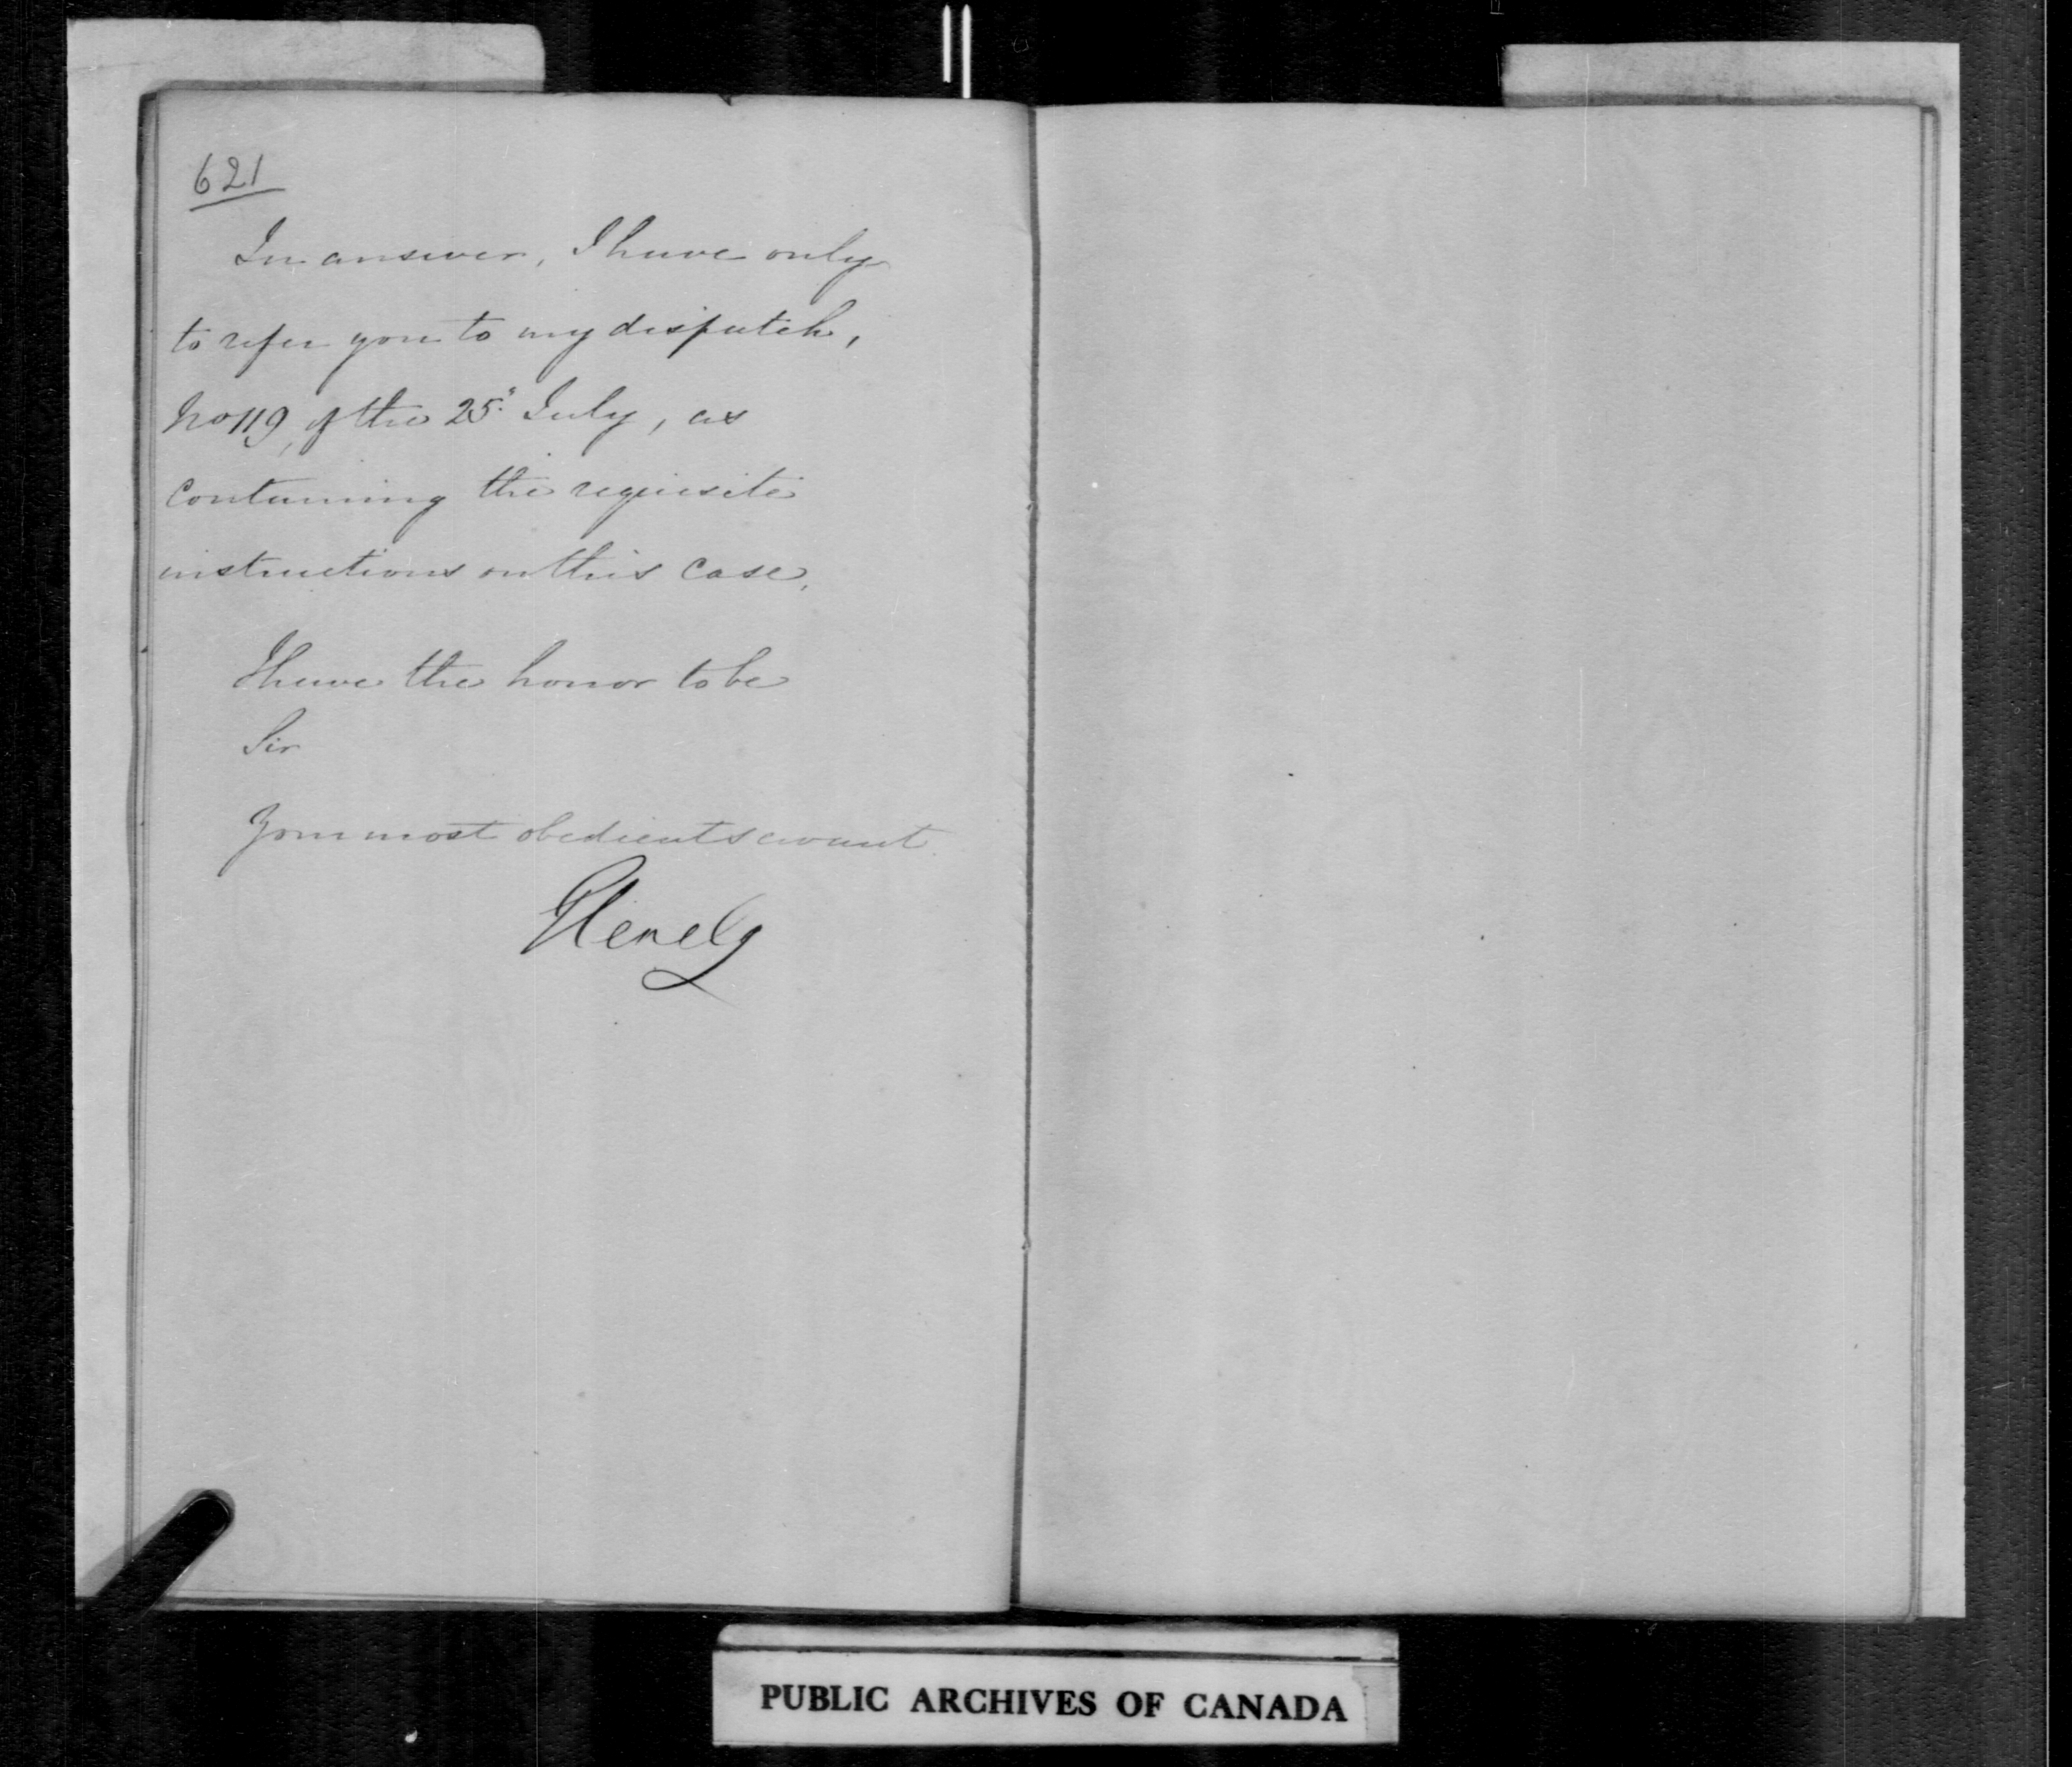 621
In answer, I have only
to refer you to my dispatch,
No 119, of the 25th July, as
containing the requisite
instructions on this case.
I have the honor to be
Sir
Your most obedient servant
Glenelg
PUBLIC ARCHIVES OF CANADA